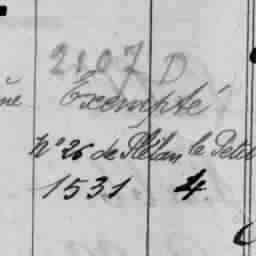 2107 D
Exempté
N° 26 de Plélan le Petit
1531 4.